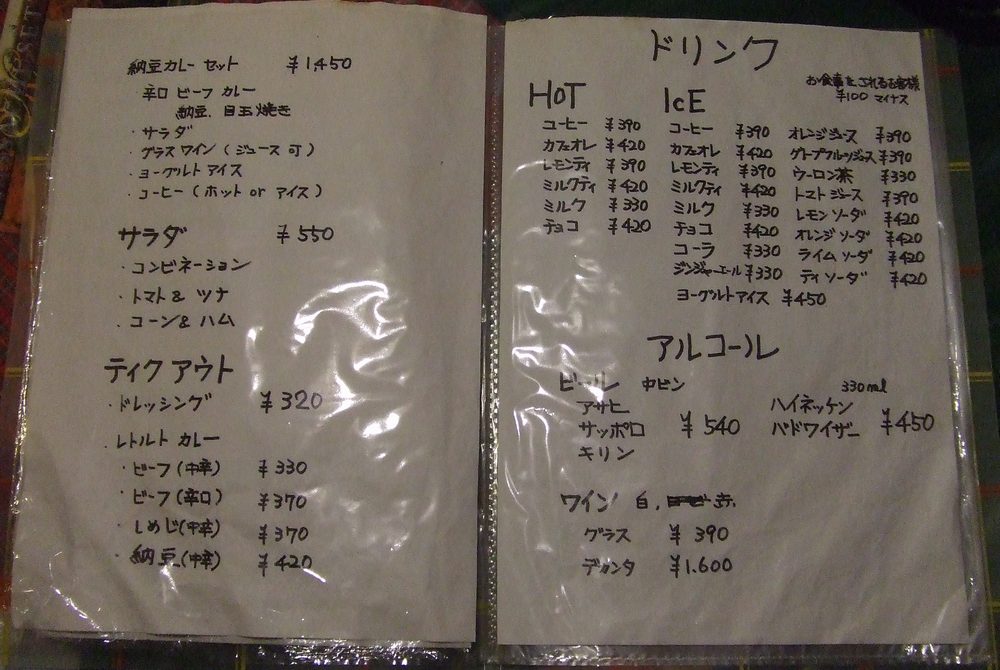 納豆カレー セット ¥1,450
辛口 ビーフ カレー
納豆、目玉焼き
・サラダ
・グラスワイン (ジュース可)
・ヨーグルトアイス
・コーヒー (ホット or アイス)
サラダ ¥550
・コンビネーション
・トマト & ツナ
・コーン & ハム
ティクアウト
・ドレッシング ¥320
・レトルト カレー
・ビーフ(中辛) ¥330
・ビーフ(辛口) ¥370
・しめじ(中辛) ¥370
・納豆(中辛) ¥420
ドリンク
お食事をされるお客様
¥100 マイナス
HOT
コーヒー ¥390
カフェオレ ¥420
レモンティ ¥390
ミルクティ ¥420
ミルク ¥330
チョコ ¥420
ICE
コーヒー ¥390
カフェオレ ¥420
レモンティ ¥390
ミルクティ ¥420
ミルク ¥330
チョコ ¥420
コーラ ¥330
ジンジャーエール ¥330
ヨーグルトアイス ¥450
オレンジジュース ¥390
グレープフルーツジュース ¥390
ウーロン茶 ¥330
トマトジュース ¥390
レモンソーダ ¥420
オレンジソーダ ¥420
ライムソーダ ¥420
ティソーダ ¥420
アルコール
ビール 中ビン
アサヒ
サッポロ ¥540
キリン
330ml
ハイネッケン
バドワイザー ¥450
ワイン 白、赤、
グラス ¥390
デカンタ ¥1.600